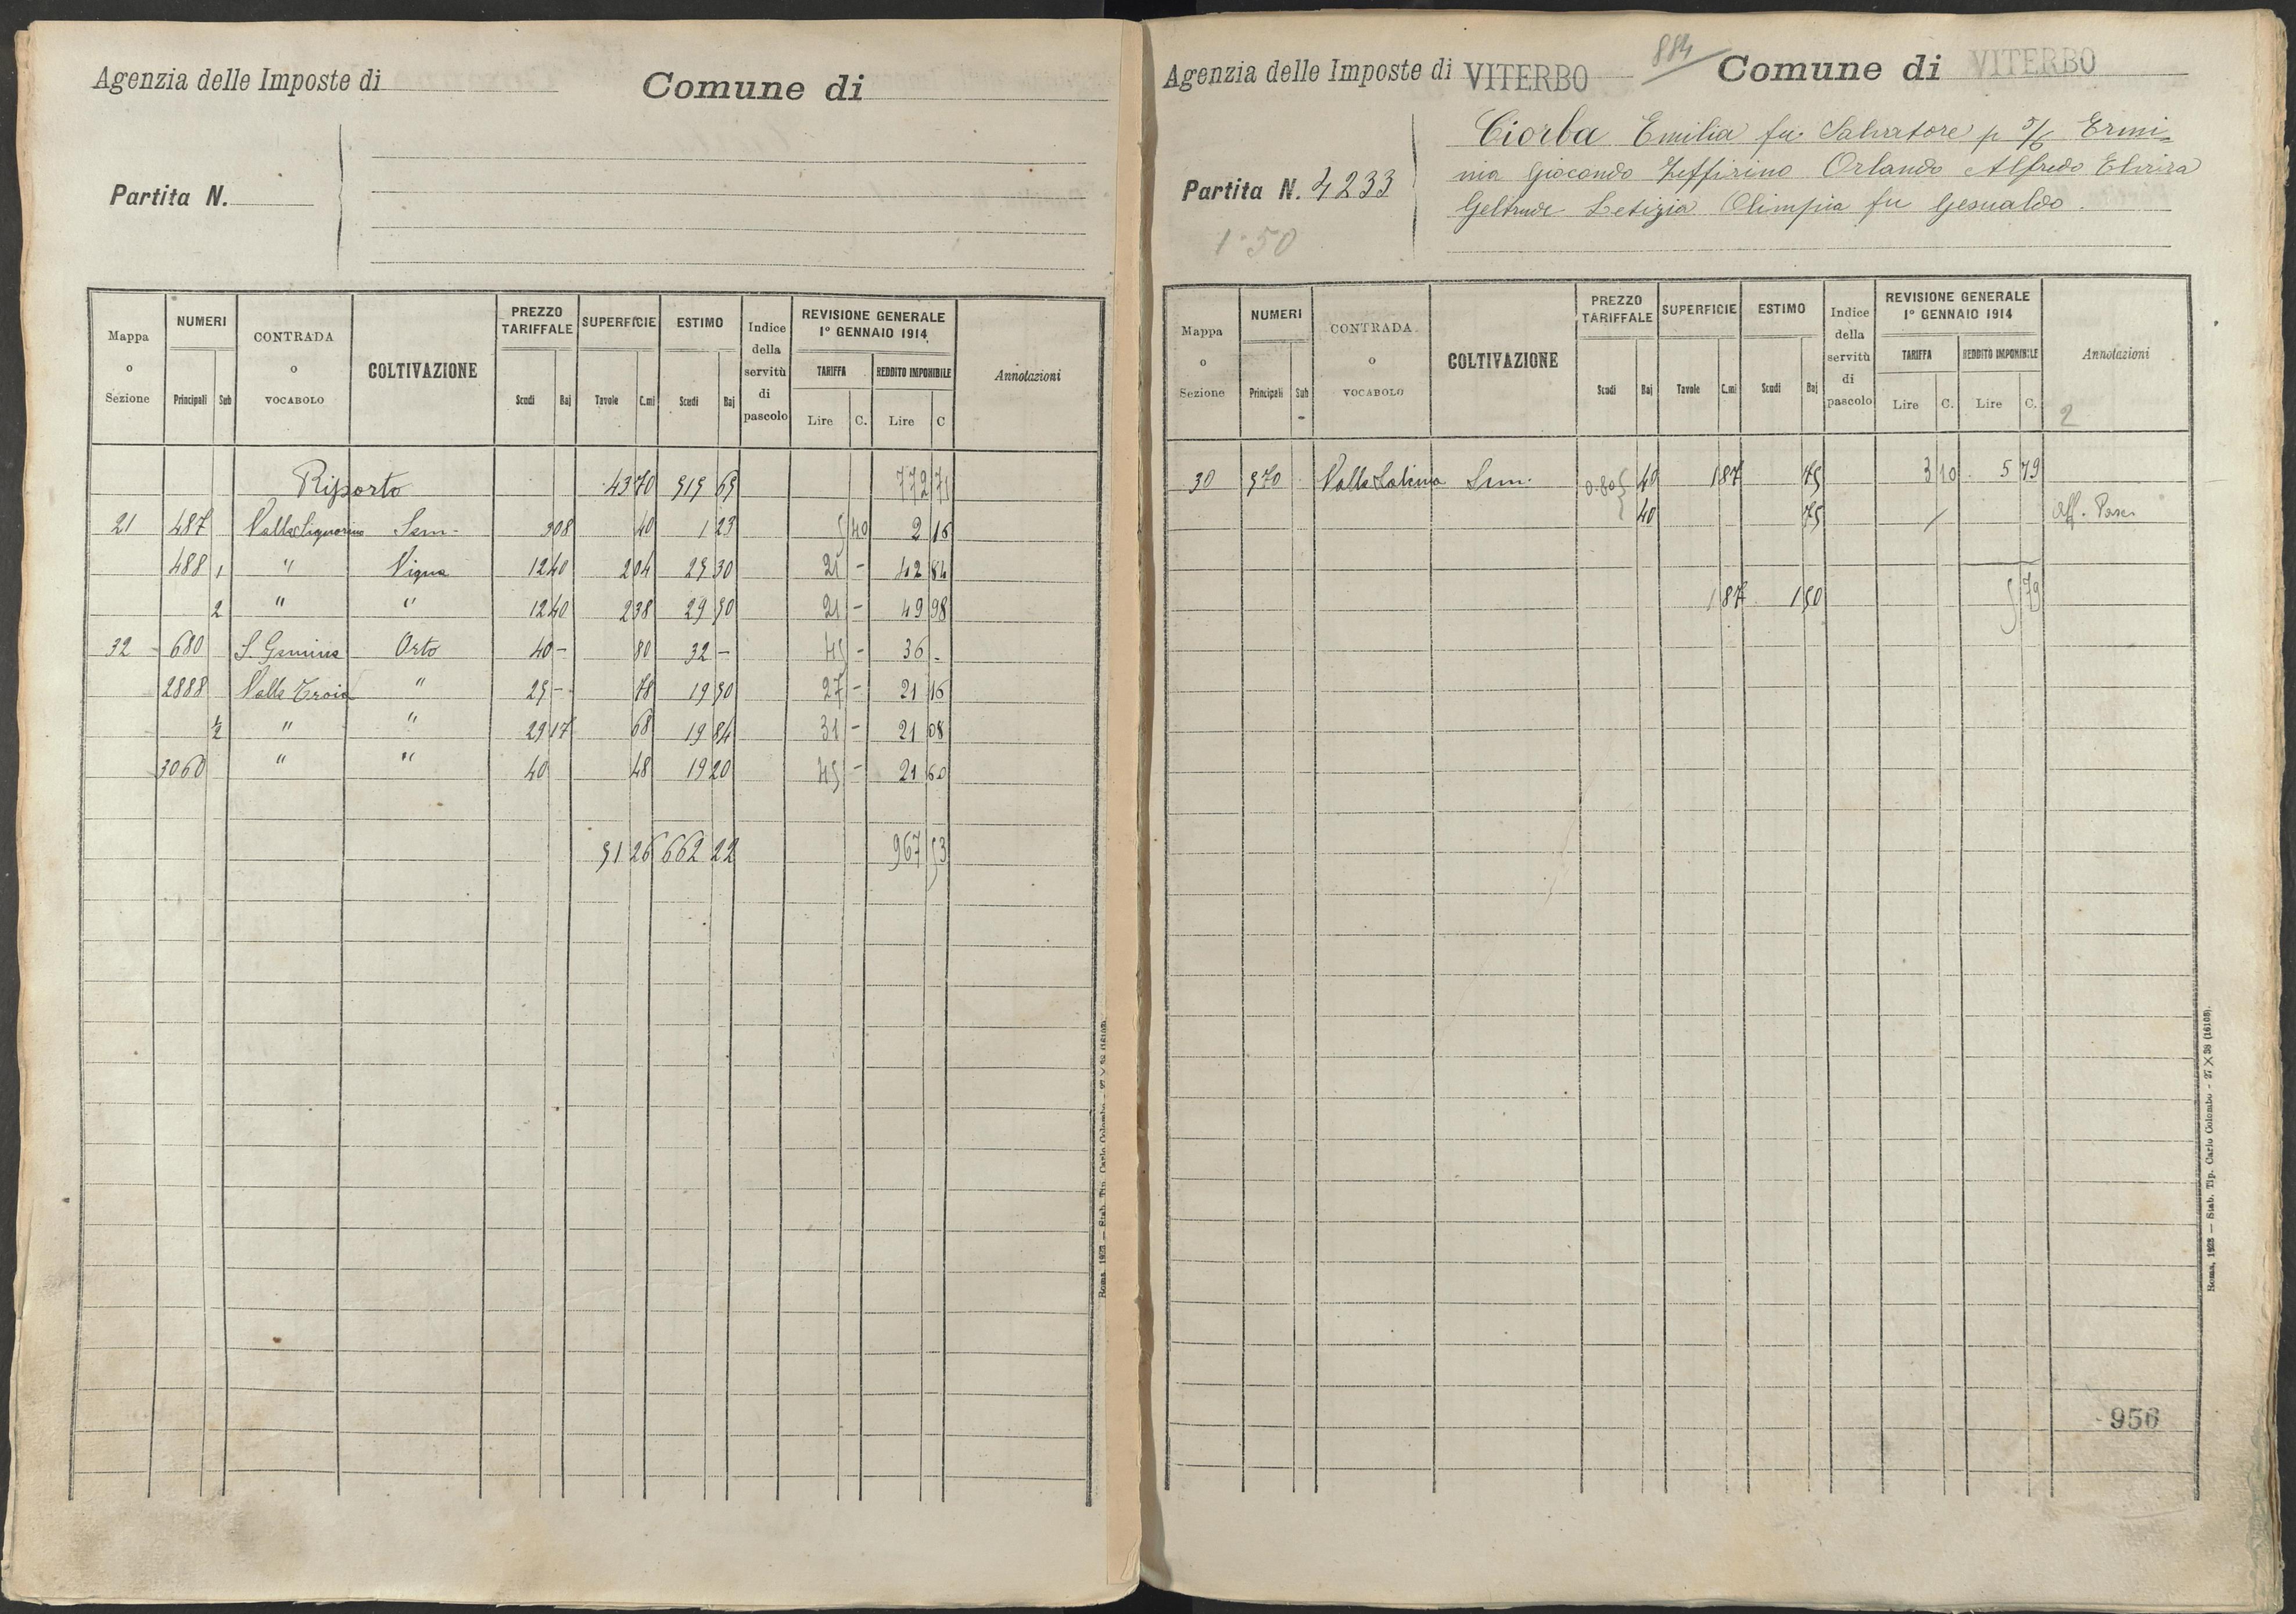 Agenzia delle Imposte di
Comune di
Partita N.
Mappa o Sezione | NUMERI Principali Sub | CONTRADA o VOCABOLO | COLTIVAZIONE | PREZZO TARIFFALE Scudi Baj | SUPERFICIE Tavole C.mi | ESTIMO Scudi Baj | Indice della servitù di pascolo | REVISIONE GENERALE 1° GENNAIO 1914 TARIFFA Lire C. REDDITO IMPONIBILE Lire C | Annotazioni
Riporto 43 70 515 65 772 71
21 487 Valle Sem. 308 40 1 23 5 40 2 16
488 1 " Vigna 12 40 2 04 25 30 21 - 42 84
2 " " 12 40 2 38 29 50 21 - 49 98
32 680 S. Gemine Orto 40 - 80 32 - 45 - 36 -
2888 Valle Troia " 25 - 78 19 50 27 - 21 16
1/2 " " 29 17 68 19 84 31 - 21 08
3060 " " 40 48 19 20 45 - 21 60
51 26 662 22 967 53
Roma, 1923 — Stab. Tip. Carlo Colombo - 27 × 38 (16108).
Agenzia delle Imposte di VITERBO
884
Comune di VITERBO
Partita N. 4233
1.50
Ciorba Emilia fu Salvatore p 5/6 Ermi-
nia Giocondo Zeffirino Orlando Alfredo Elvira
Geltrude Letizia Olimpia fu Gesualdo.
Mappa o Sezione | NUMERI Principali Sub | CONTRADA o VOCABOLO | COLTIVAZIONE | PREZZO TARIFFALE Scudi Baj | SUPERFICIE Tavole C.mi | ESTIMO Scudi Baj | Indice della servitù di pascolo | REVISIONE GENERALE 1° GENNAIO 1914 TARIFFA Lire C. REDDITO IMPONIBILE Lire C. | Annotazioni
2
30 570 Valle Sem. 0.80 40 1 87 75 3 10 5 79
40 75 / Aff. Pasc.
1 87 1 50 5 79
956
Roma, 1923 — Stab. Tip. Carlo Colombo - 27 × 38 (16108).